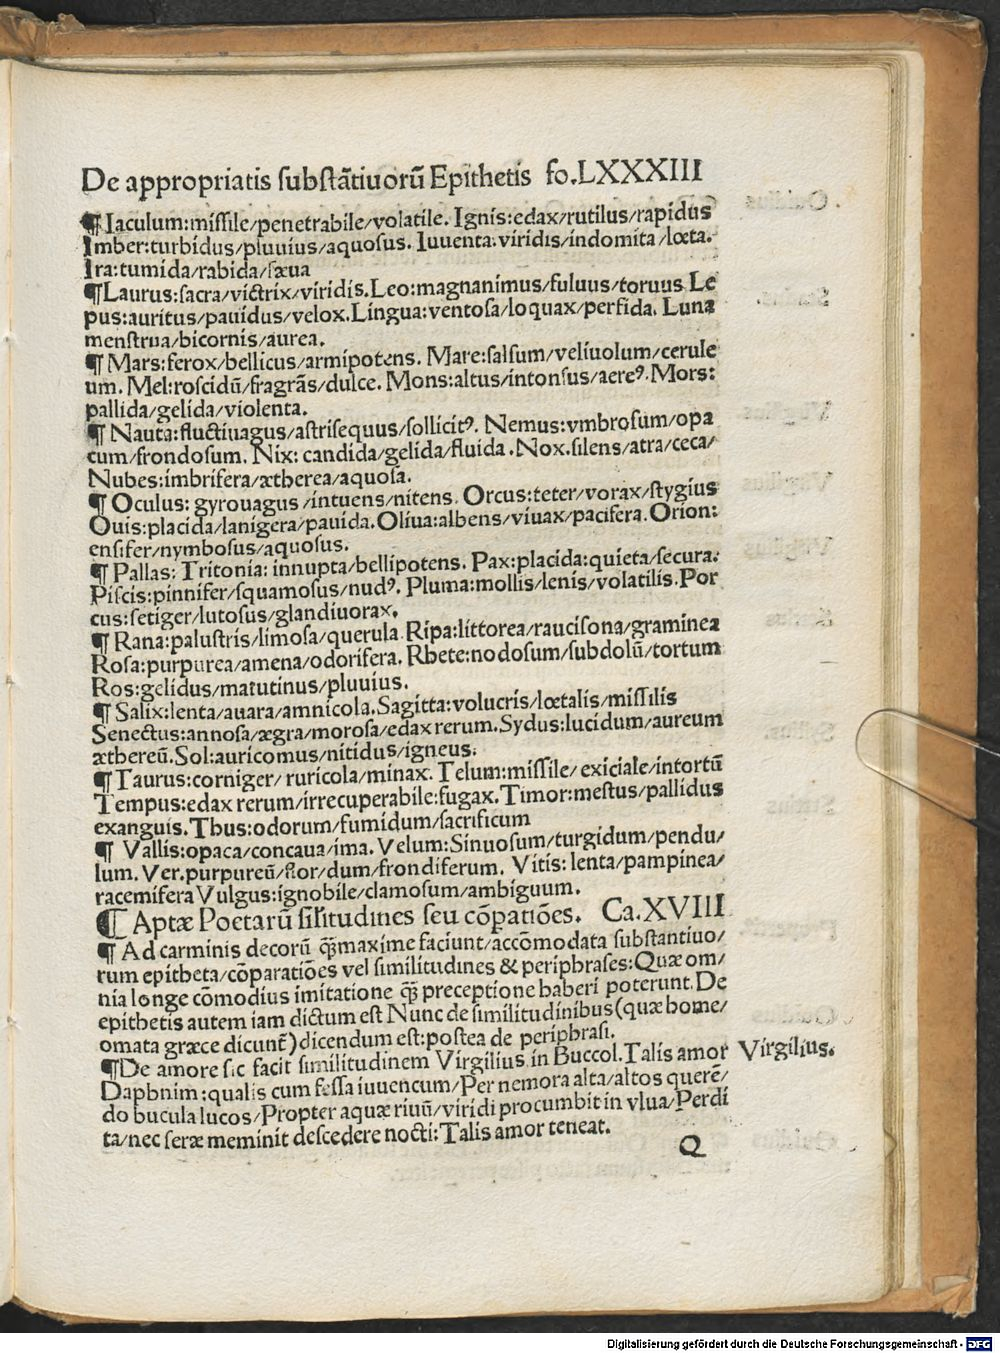 De appropriatis substãtiuorũ Epithetis fo.LXXXIII
¶ Iaculum:missile/penetrabile/volatile. Ignis:edax/rutilus/rapidus
Imber:turbidus/pluuius/aquosus. Iuuenta:viridis/indomita/lœta.
Ira:tumida/rabida/sæua
¶ Laurus:sacra/victrix/viridis. Leo:magnanimus/fuluus/toruus Le
pus:auritus/pauidus/velox. Lingua:ventosa/loquax/perfida. Luna
menstrua/bicornis/aurea.
¶ Mars:ferox/bellicus/armipotens. Mare:salsum/veliuolum/cerule
um. Mel:roscidũ/fragrãs/dulce. Mons:altus/intonsus/aereꝰ. Mors:
pallida/gelida/violenta.
¶ Nauta:fluctiuagus/astrisequus/sollicitꝰ. Nemus:vmbrosum/opa
cum/frondosum. Nix: candida/gelida/fluida. Nox.silens/atra/ceca/
Nubes:imbrifera/ætherea/aquosa.
¶ Oculus: gyrouagus/intuens/nitens. Orcus:teter/vorax/stygius
Ouis:placida/lanigera/pauida. Oliua:albens/viuax/pacifera. Orion:
ensifer/nymbosus/aquosus.
¶ Pallas: Tritonia: innupta/bellipotens. Pax:placida:quieta/secura.
Piscis:pinnifer/squamosus/nudꝰ. Pluma:mollis/lenis/volatilis. Por
cus:setiger/lutosus/glandiuorax.
¶ Rana:palustris/limosa/querula. Ripa:littorea/raucisona/graminea
Rosa:purpurea/amena/odorifera. Rhete:nodosum/subdolũ/tortum
Ros:gelidus/matutinus/pluuius.
¶ Salix:lenta/auara/amnicola. Sagitta:volucris/lœtalis/missilis
Senectus:annosa/ægra/morosa/edax rerum. Sydus:lucidum/aureum
æthereũ. Sol:auricomus/nitidus/igneus:
¶ Taurus:corniger/ ruricola/minax. Telum:missile/ exiciale/intortũ
Tempus:edax rerum/irrecuperabile:fugax. Timor:mestus/pallidus
exanguis. Thus:odorum/fumidum/sacrificum
¶ Vallis:opaca/concaua/ima. Velum:Sinuosum/turgidum/pendu/
lum. Ver.purpureũ/flor/dum/frondiferum. Vitis: lenta/pampinea/
racemifera Vulgus:ignobile/clamosum/ambiguum.
¶ Aptæ Poetarũ siłitudines seu cõpatiões. Ca.XVIII
¶ Ad carminis decorũ qꝫmaxime faciunt/accõmodata substantiuo/
rum epitheta/cõparatiões vel similitudines & periphrases:Quæ om/
nia longe cõmodius imitatione qꝫ preceptione haberi poterunt. De
epithetis autem iam dictum est Nunc de similitudinibus (quæ home/
omata græce dicunt̃) dicendum est:postea de periphrasi.
¶ De amore sic facit similitudinem Virgilius in Buccol. Talis amor
Virgilius.
Daphnim:qualis cum fessa iuuencum/Per nemora alta/altos querẽ/
do bucula lucos/Propter aquæ riuũ/viridi procumbit in vlua/Perdi
ta/nec seræ meminit descedere nocti:Talis amor teneat.
Q
Digitalisierung gefördert durch die Deutsche Forschungsgemeinschaft - DFG